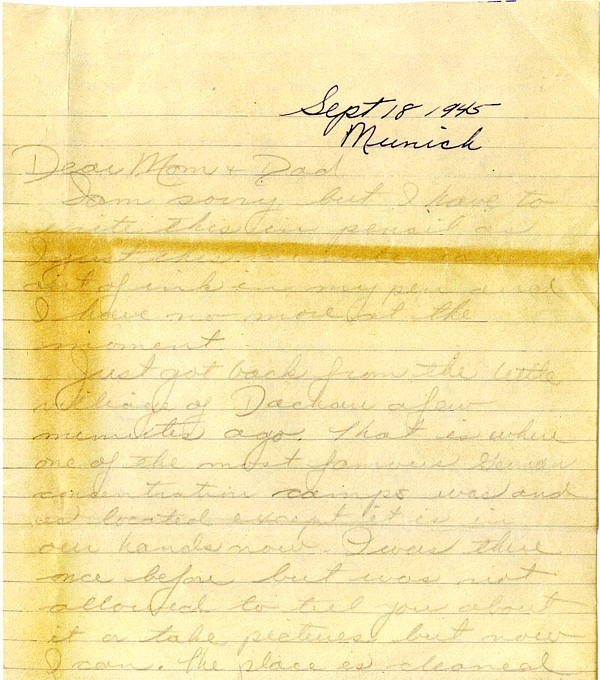 Sept 18 1945
Munich
Dear Mom + Dad
I am sorry but I have to
write this in pencil as
I just this minute ran
out of ink in my pen and
I have no more at the
moment
Just got back from the little
village of Dachau a few
minutes ago. That is where
one of the most famous German
concentration camps was and
is located except it is in
our hands now. I was there
once before but was not
allowed to tell you about
it or take pictures but now
I can. The place is cleaned